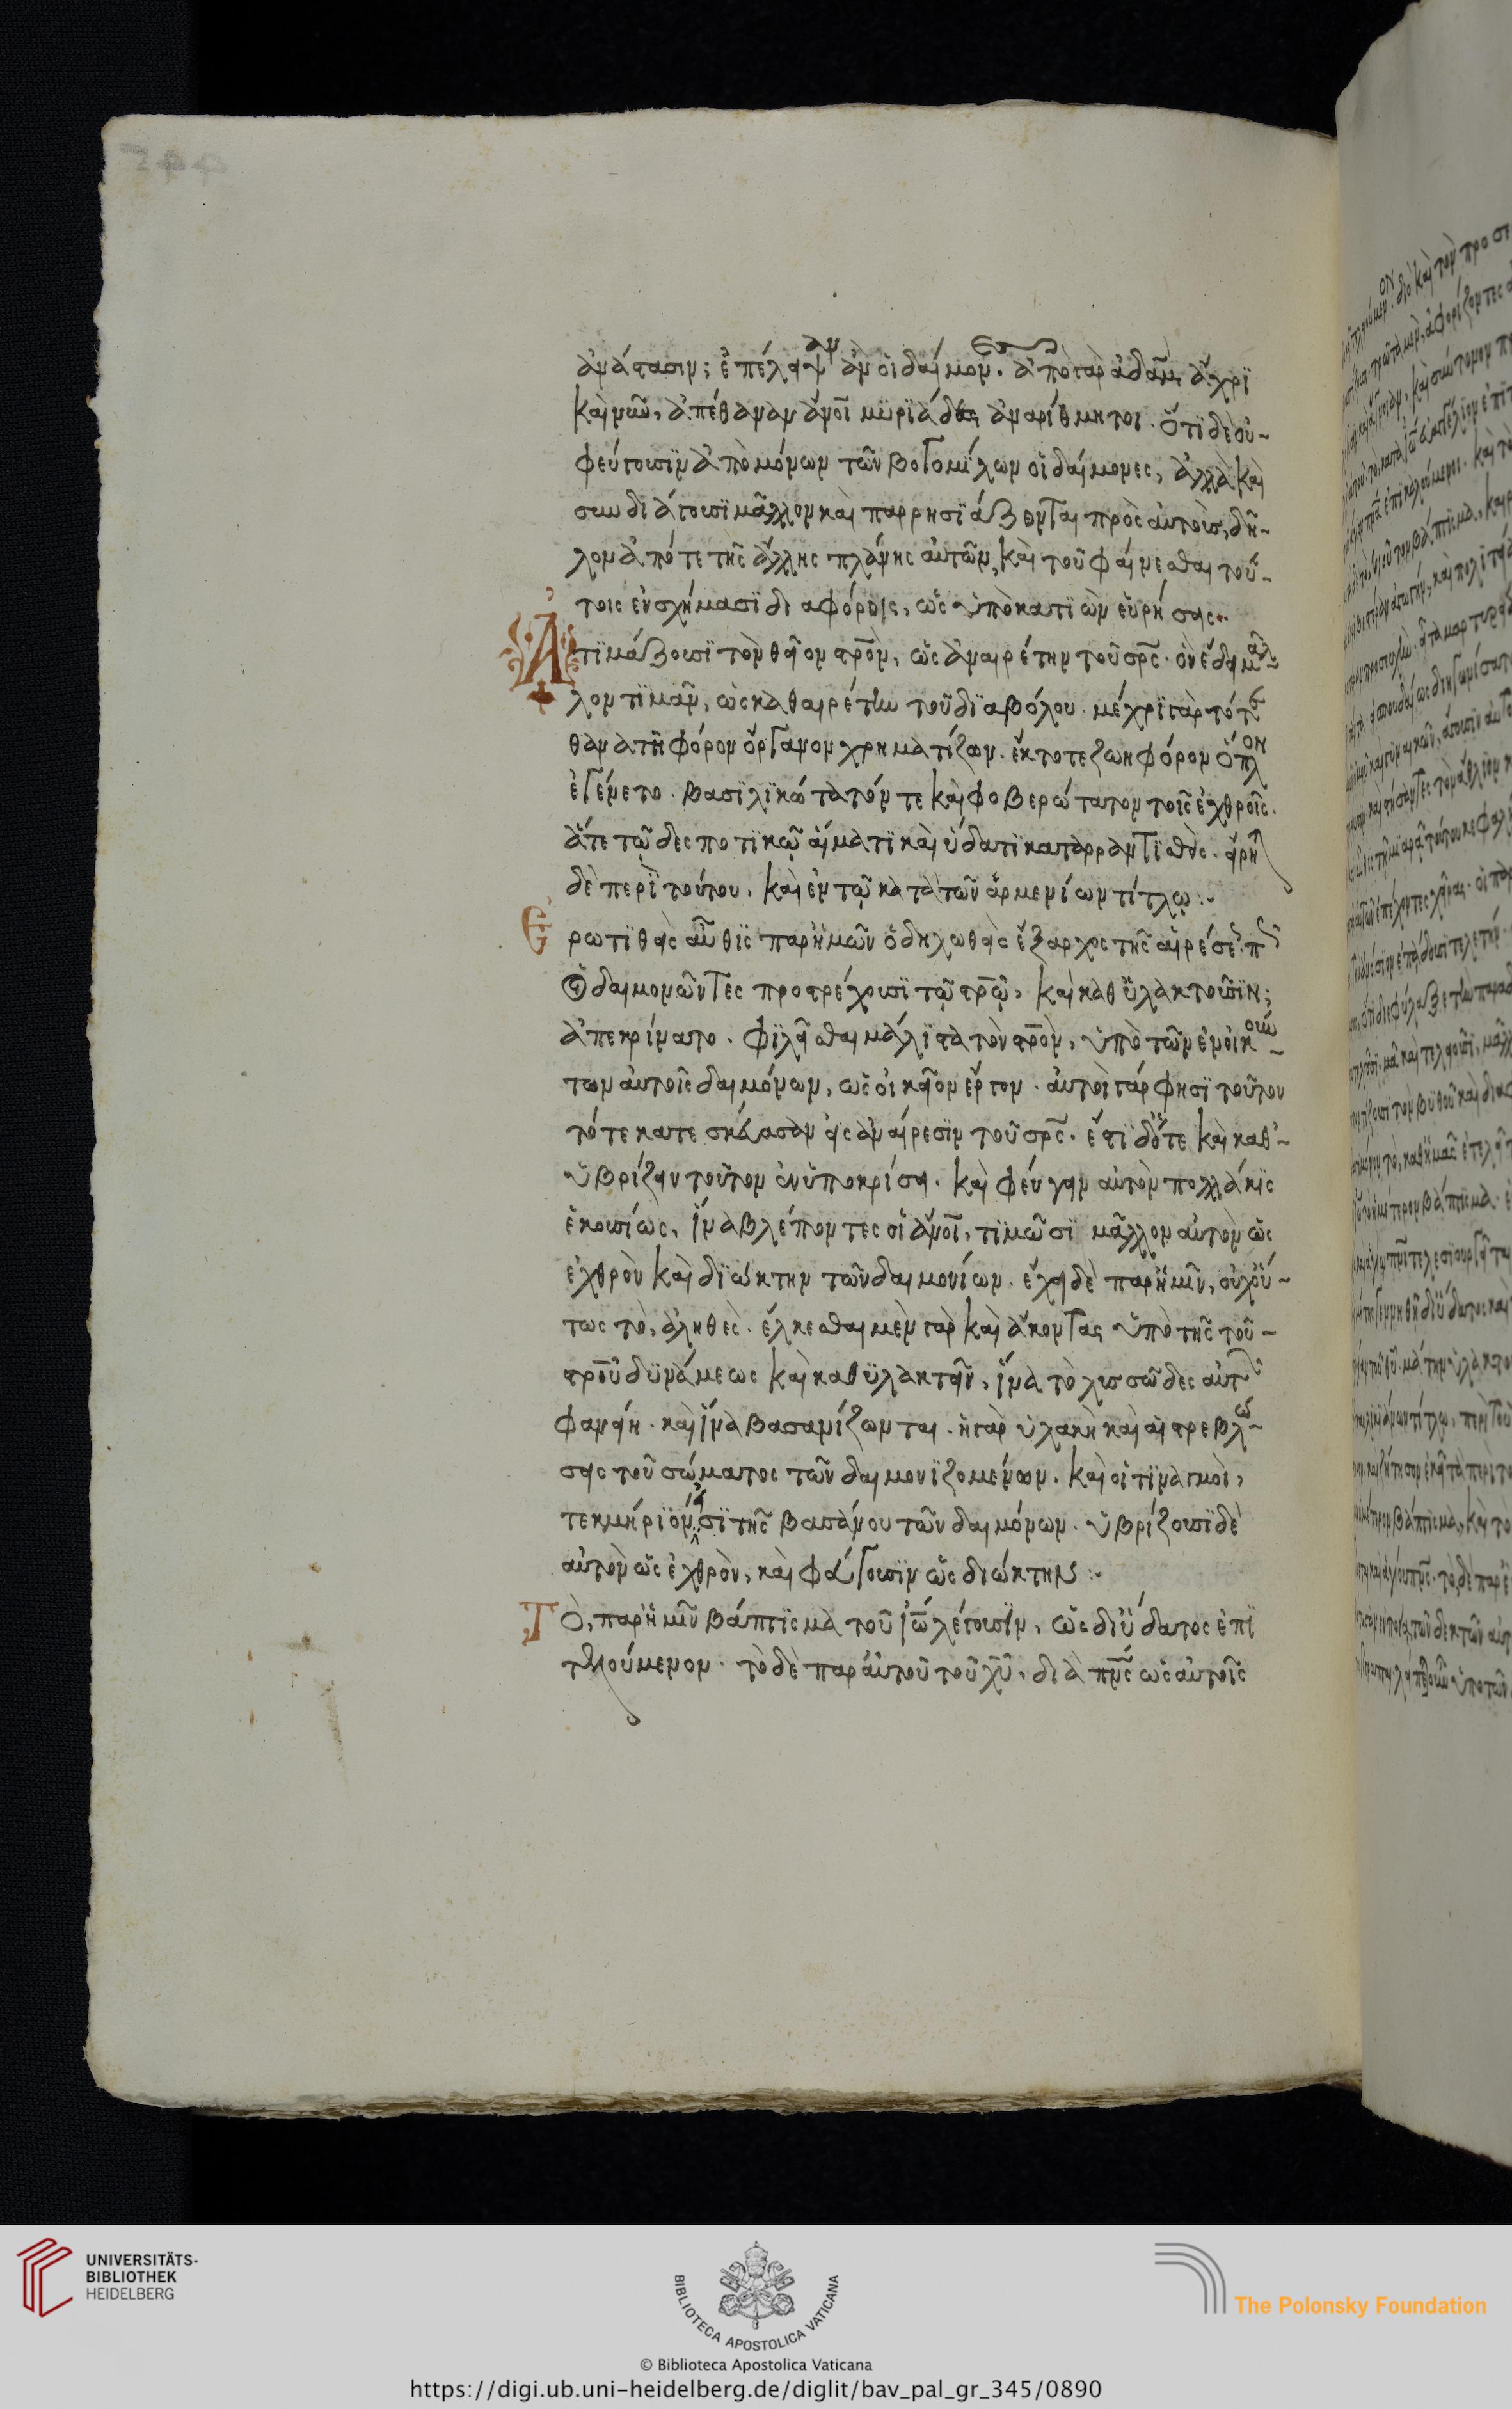 ἀνάστασιν; ἐπέλειψαν ἂν οἱ δαίμονες. ἀπὸ γὰρ ἀδὰμ ἄχρϊ
καὶ νῦν, ἀπέθαναν ἄνοι μϋρϊάδες ἀναρίθμητοι. ὅτϊ δὲ οὐ-
φεύγουσϊν ἀπὸ μόνων τῶν βογομίλων οἱ δαίμονες, ἀλλὰ καὶ
συνδιάγουσϊ μᾶλλον καὶ παρρησϊάζονται πρὸς αὐτοὺς, δῆ-
λον ἀπό τε τῆς ἄλλης πλάνης αὐτῶν, καὶ τοῦ φαίνεσθαι τού-
τοις ἐν σχήμασϊ διαφόροις, ὡς ὑποκατϊὼν εὑρήσεις.
Ἀτϊμάζουσϊ τὸν θεῖον στρον, ὡς ἀναιρέτην τοῦ σρς. ὃν ἔδει μᾶλ-
λον τϊμᾶν, ὡς καθαιρέτην τοῦ δϊαβόλου. μέχρϊ γὰρ τότε
θανατηφόρον ὄργανον χρηματίζων. ἔκτοτε ζωηφόρον ὅπλον
ἐγένετο. βασϊλϊκώτατόν τε καὶ φοβερώτατον τοῖς ἐχθροῖς.
ἅτε τῷ δεσποτϊκῷ αἵματϊ καὶ ὕδατϊ καταρραντϊσθείς. εἴρηται
δὲ περὶ τούτου, καὶ ἐν τῷ κατὰ τῶν ἀρμενίων τίτλῳ:
Ἐρωτϊθεὶς αὖθϊς παρ' ἡμῶν ὁ δηλωθεὶς ἔξαρχος τῆς αἱρέσεως πῶς
οἱ δαιμονῶντες προστρέχουσϊ τῷ στρῷ, καὶ καθϋλακτοῦσϊν;
ἀπεκρίνατο. φϊλεῖσθαι μάλϊστα τὸν στρον, ὑπὸ τῶν ἐνοικούν-
των αὐτοῖς δαιμόνων, ὡς οἰκεῖον ἔργον. αὐτοὶ γάρ φησϊ τοῦτον
τότε κατεσκεύασαν εἰς ἀναίρεσϊν τοῦ σρς. ἔστϊ δ' ὅτε καὶ καθ'-
ὑβρίζειν τοῦτον ἐν ὑποκρίσει. καὶ φεύγειν αὐτὸν πολλάκϊς
ἑκουσίως, ἵνα βλέποντες οἱ ἄνοι, τϊμῶσϊ μᾶλλον αὐτὸν ὡς
ἐχθρὸν καὶ δϊώκτην τῶν δαιμονίων. ἔχει δὲ παρ' ἡμῖν, οὐχ οὕ-
τως τὸ, ἀληθές. ἕλκεσθαι μὲν γὰρ καὶ ἄκοντας ὑπὸ τῆς τοῦ-
στροῦ δϋνάμεως καὶ καθϋλακτεῖν, ἵνα τὸ λυσσῶδες αὐτῶν
φανείη. καὶ ἵνα βασανίζωνται. ἡ γὰρ ὑλακὴ καὶ αἱ στρεβλώ-
σεις τοῦ σώματος τῶν δαιμονϊζομένων. καὶ οἱ τϊναγμοὶ,
τεκμήρϊόν εἰσϊ τῆς βασάνου τῶν δαιμόνων. ὑβρίζουσϊ δὲ
αὐτὸν ὡς ἐχθρὸν, καὶ φεύγουσϊν ὡς διώκτην:
Τὸ, παρ' ἡμῖν βάπτϊσμα τοῦ ἰῶ λέγουσϊν, ὡς δι' ὕδατος ἐπϊ
τελούμενον. τὸ δὲ παρ' αὐτοῦ τοῦ χῦ, διὰ πνς ὡς αὐτοῖς
UNIVERSITÄTS-
BIBLIOTHEK
HEIDELBERG
BIBLIOTECA APOSTOLICA VATICANA
The Polonsky Foundation
© Biblioteca Apostolica Vaticana
https://digi.ub.uni-heidelberg.de/diglit/bav_pal_gr_345/0890